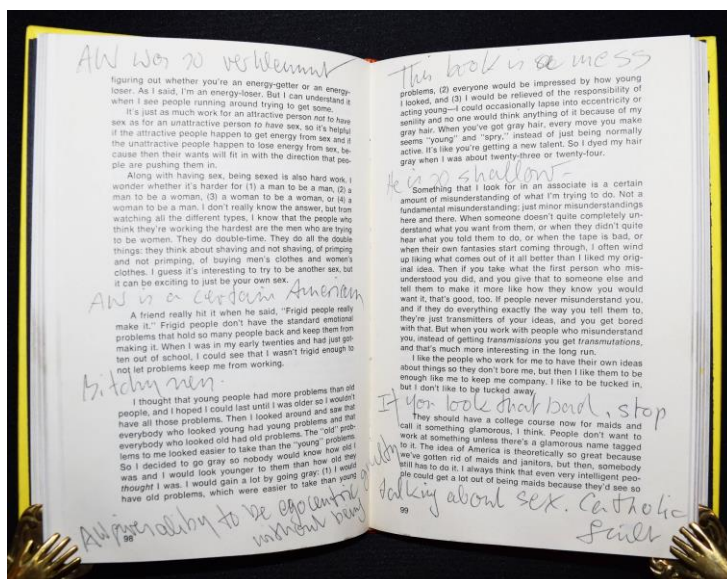 AW was so
figuring out whether you're an energy-getter or an energy-
loser. As I said, I'm an energy-loser. But I can understand it
when I see people running around trying to get some.
It's just as much work for an attractive person not to have
sex as for an unattractive person to have sex, so it's helpful
if the attractive people happen to get energy from sex and if
the unattractive people happen to lose energy from sex, be-
cause then their wants will fit in with the direction that peo-
ple are pushing them in.
Along with having sex, being sexed is also hard work. I
wonder whether it's harder for (1) a man to be a man, (2) a
man to be a woman, (3) a woman to be a woman, or (4) a
woman to be a man. I don't really know the answer, but from
watching all the different types, I know that the people who
think they're working the hardest are the men who are trying
to be women. They do double-time. They do all the double
things: they think about shaving and not shaving, of primping
and not primping, of buying men's clothes and women's
clothes. I guess it's interesting to try to be another sex, but
it can be exciting to just be your own sex.
AW is a certain American
A friend really hit it when he said, "Frigid people really
make it." Frigid people don't have the standard emotional
problems that hold so many people back and keep them from
making it. When I was in my early twenties and had just got-
ten out of school, I could see that I wasn't frigid enough to
not let problems keep me from working.
Bitchy men.
I thought that young people had more problems than old
people, and I hoped I could last until I was older so I wouldn't
have all those problems. Then I looked around and saw that
everybody who looked young had young problems and that
everybody who looked old had old problems. The "old" prob-
lems to me looked easier to take than the "young" problems.
So I decided to go gray so nobody would know how old I
was and I would look younger to them than how old they
thought I was. I would gain a lot by going gray: (1) I would
have old problems, which were easier to take than young
AW to be egocentric
without being guilty
98
This book is a mess
problems, (2) everyone would be impressed by how young
I looked, and (3) I would be relieved of the responsibility of
acting young—I could occasionally lapse into eccentricity or
senility and no one would think anything of it because of my
gray hair. When you've got gray hair, every move you make
seems "young" and "spry," instead of just being normally
active. It's like you're getting a new talent. So I dyed my hair
gray when I was about twenty-three or twenty-four.
He is so shallow-
Something that I look for in an associate is a certain
amount of misunderstanding of what I'm trying to do. Not a
fundamental misunderstanding; just minor misunderstandings
here and there. When someone doesn't quite completely un-
derstand what you want from them, or when they didn't quite
hear what you told them to do, or when the tape is bad, or
when their own fantasies start coming through, I often wind
up liking what comes out of it all better than I liked my orig-
inal idea. Then if you take what the first person who mis-
understood you did, and you give that to someone else and
tell them to make it more like how they know you would
want it, that's good, too. If people never misunderstand you,
and if they do everything exactly the way you tell them to,
they're just transmitters of your ideas, and you get bored
with that. But when you work with people who misunderstand
you, instead of getting transmissions you get transmutations,
and that's much more interesting in the long run.
I like the people who work for me to have their own ideas
about things so they don't bore me, but then I like them to be
enough like me to keep me company. I like to be tucked in,
but I don't like to be tucked away.
If you look that bad, stop
They should have a college course now for maids and
call it something glamorous, I think. People don't want to
work at something unless there's a glamorous name tagged
to it. The idea of America is theoretically so great because
we've gotten rid of maids and janitors, but then, somebody
still has to do it. I always think that even very intelligent peo-
ple could get a lot out of being maids because they'd see so
talking about sex. Catholic
guilt
99